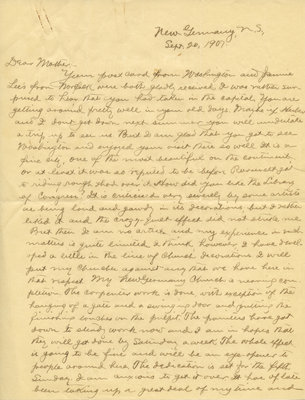 New Germany, N.S,
Sept. 20, 1907
Dear Mother:
Your post card from Washington and Jennie
Lee's from Norfolk were both gladly received. I was rather sur-
prised to hear that you had taken in the capital. You are
getting around pretty well in your old days.
and I don't get down next summer you will undertake
a trip up to see us. But I am glad that you got to see
Washington and enjoyed your visit there so well. It is a
fine city, one of the most beautiful on the continent,
or at least it was so reputed to be before Roosevelt got
to riding rough shod over it. How did you like the Library
of Congress? It is criticised very severely by some artists
as being loud and gaudy in its decorations but I rather
liked it and the effect did not strike me.
But then I am no artist and my experience in such
matters is quite limited. I think however I have devel-
oped a little in the line of Church decorations. I will
put my Church against any that we have here in
that respect. My New Germany Church is nearing com-
pletion. The carpenter work is done with exception of the
hanging of a gate and a swing door and putting the
finishing touches on the pulpit. The painters have got
down to steady work now and I am in hopes that
they will get done by Saturday a week. The whole effect
is going to be fine and will be an eye-opener to
people around here. The dedication is set for the fifth
Sunday. I am anxious to get it over. It has of late
been taking up a great deal of my time and